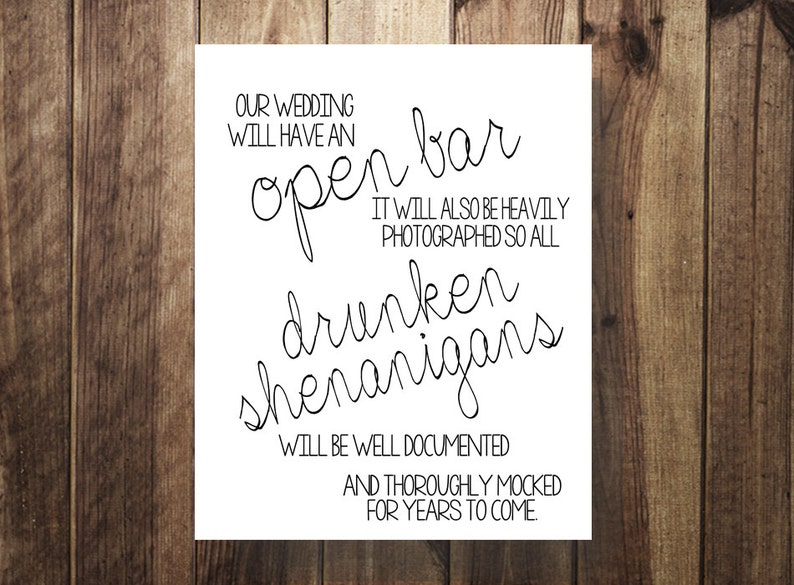 OUR WEDDING
WILL HAVE AN
open bar
IT WILL ALSO BE HEAVILY
PHOTOGRAPHED SO ALL
drunken
shenanigans
WILL BE WELL DOCUMENTED
AND THOROUGHLY MOCKED
FOR YEARS TO COME.